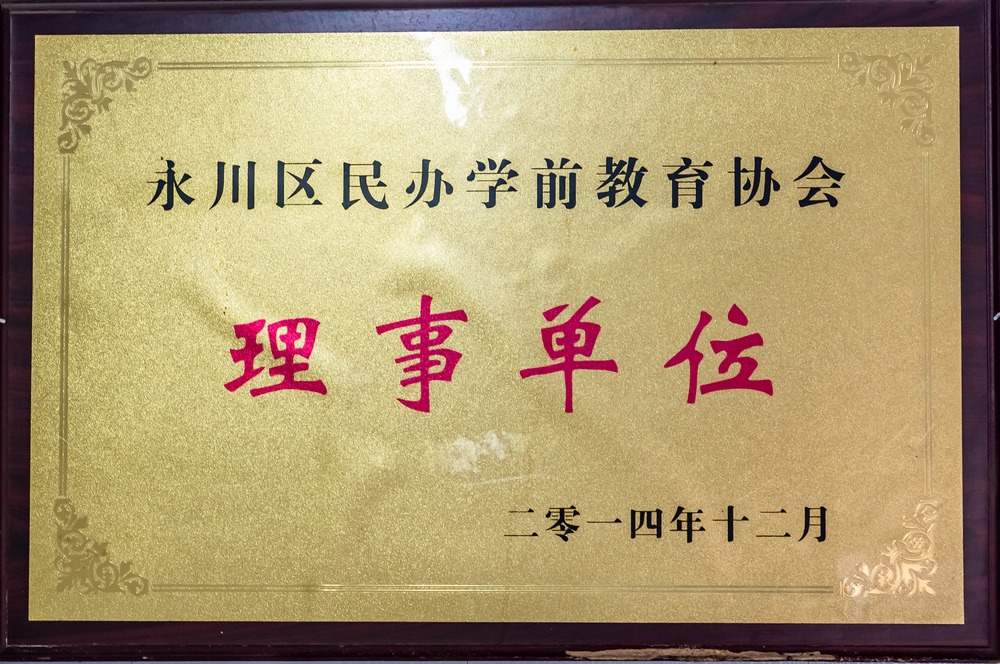 永川区民办学前教育协会
理事单位
二零一四年十二月